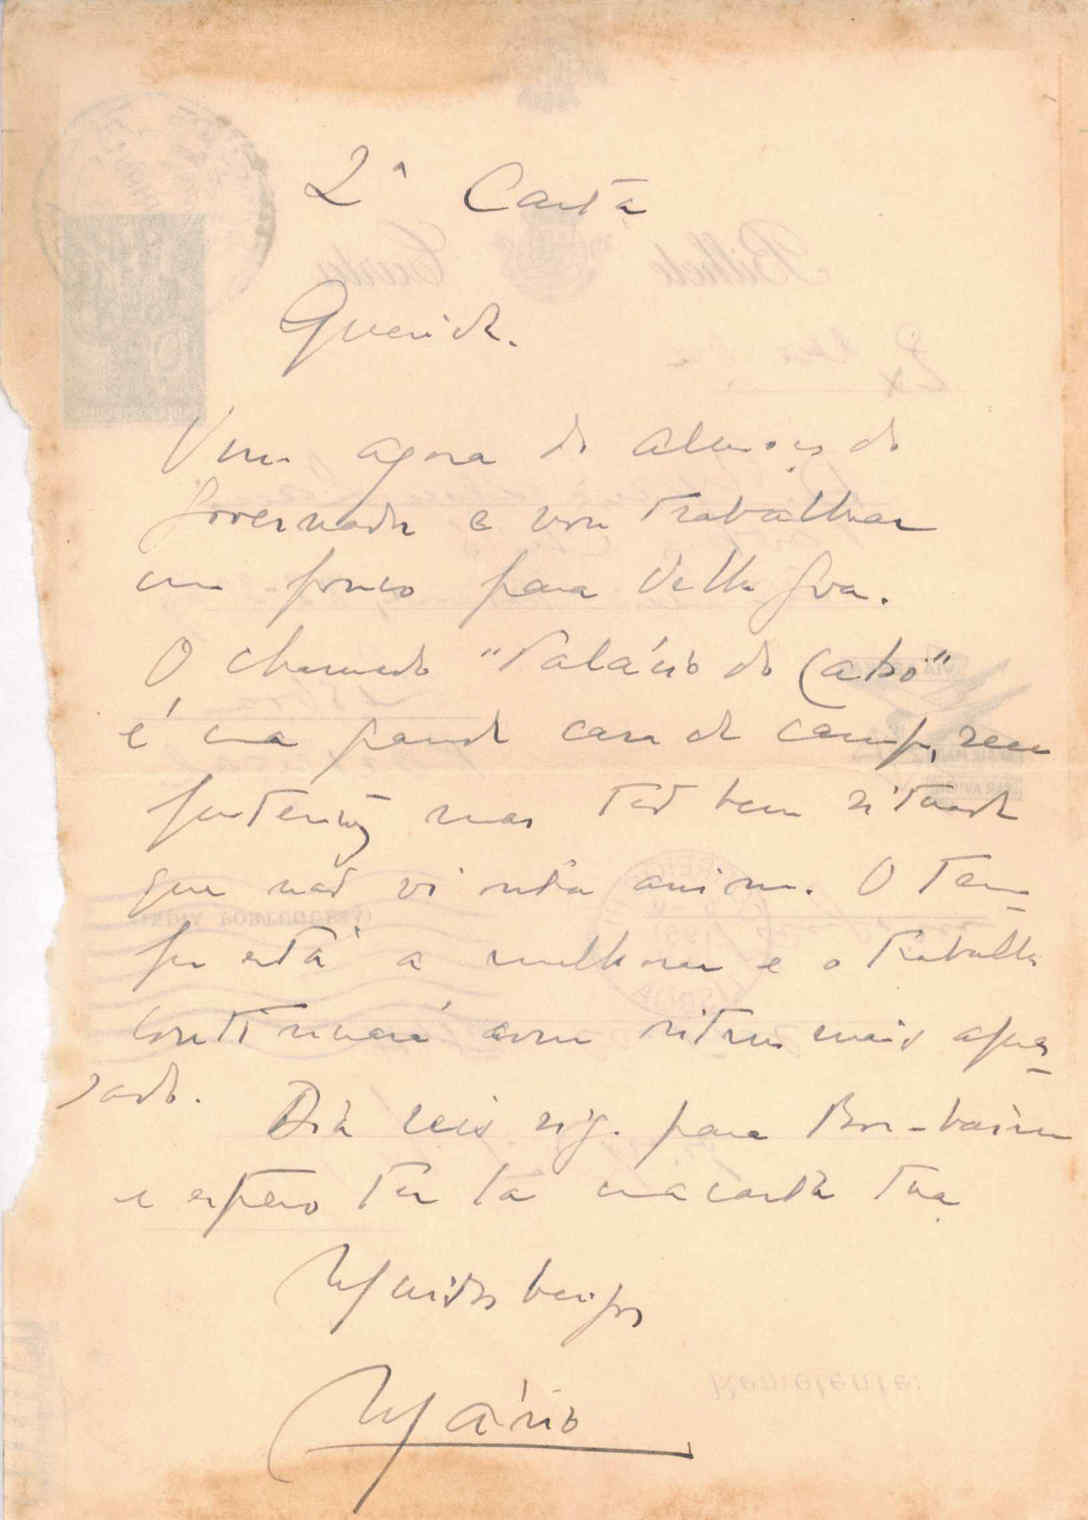 2ª Carta
Querida.
Vim agora do almoço do
Governador e vou trabalhar
um pouco para Velha Goa.
O chamado "Palácio do Cabo"
é uma grande casa de campo, sem
pretensão mas tão bem situada
que não vi outra assim. O tem-
po está a melhorar e o trabalho
continuará com ritmo mais apres-
sado.
Dia seis sigo para Bombaim
e espero ter lá uma carta tua
Muitos beijos
Mário
Bilhete Carta
Remetente: